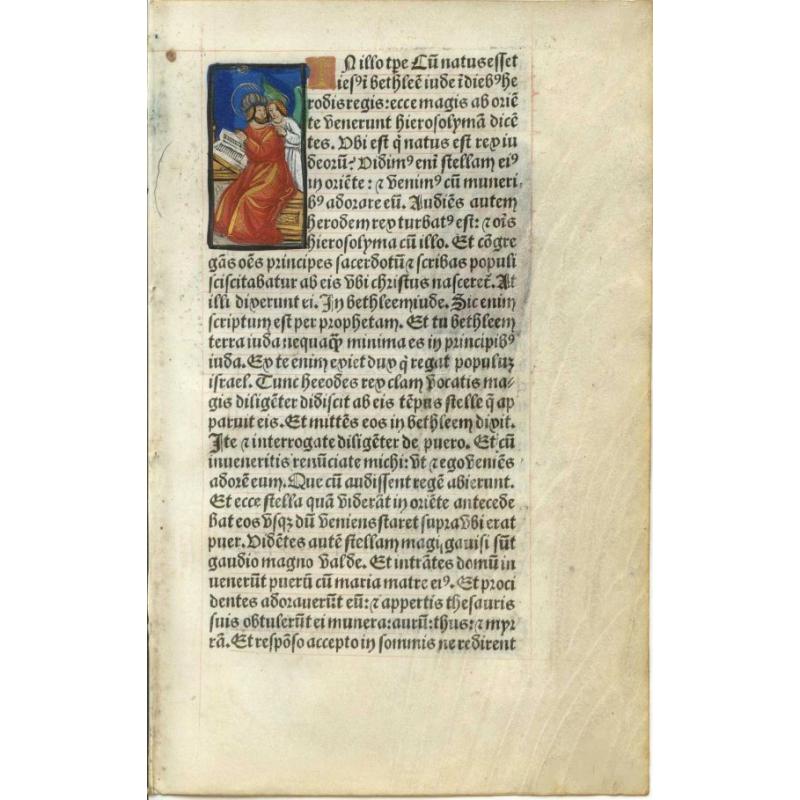 IN illo tp̄e Cū natus esset
iesꝰ ī bethleē iude ī diebꝰ he
rodis regis: ecce magis ab oriē
te venerunt hierosolymā dicē
tes. Vbi est q̄ natus est rex iu
deorū? Vidimꝰ eni stellam eiꝰ
in oriēte: ⁊ venimꝰ cū muneri
bꝰ adorate eū. Audiēs autem
herodem rex turbatꝰ est: ⁊ oīs
hierosolyma cū illo. Et cōgre
gās oēs principes sacerdotū ⁊ scribas populi
sciscitabatur ab eis vbi christus nasceret̄. At
illi dixerunt ei. In bethleem iude. Sic enim
scriptum est per prophetam. Et tu bethleem
terra iuda: nequaqȝ minima es in principibꝰ
iuda. Ex te enim exiet dux q̄ regat populuȝ
israel. Tunc heeodes rex clam vocatis ma⸗
gis diligēter didiscit ab eis tēpus stelle q̄ ap
paruit eis. Et mittēs eos in bethleem dixit.
Ite ⁊ interrogate diligēter de puero. Et cū
inueneritis renūciate michi: vt ⁊ ego veniēs
adorē eum. Que cū audissent regē abierunt.
Et ecce stella quā viderāt in oriēte antecede
bat eos vsqȝ dū veniens staret supra vbi erat
puer. Vidētes autē stellam magi, gauisi sūt
gaudio magno valde. Et intrātes domū in
uenerūt puerū cū maria matre eiꝰ. Et proci
dentes adorauerūt eū: ⁊ appertis thesauris
suis obtulerūt ei munera: aurū: thus: ⁊ myr
rā. Et respōso accepto in somnis ne redirent